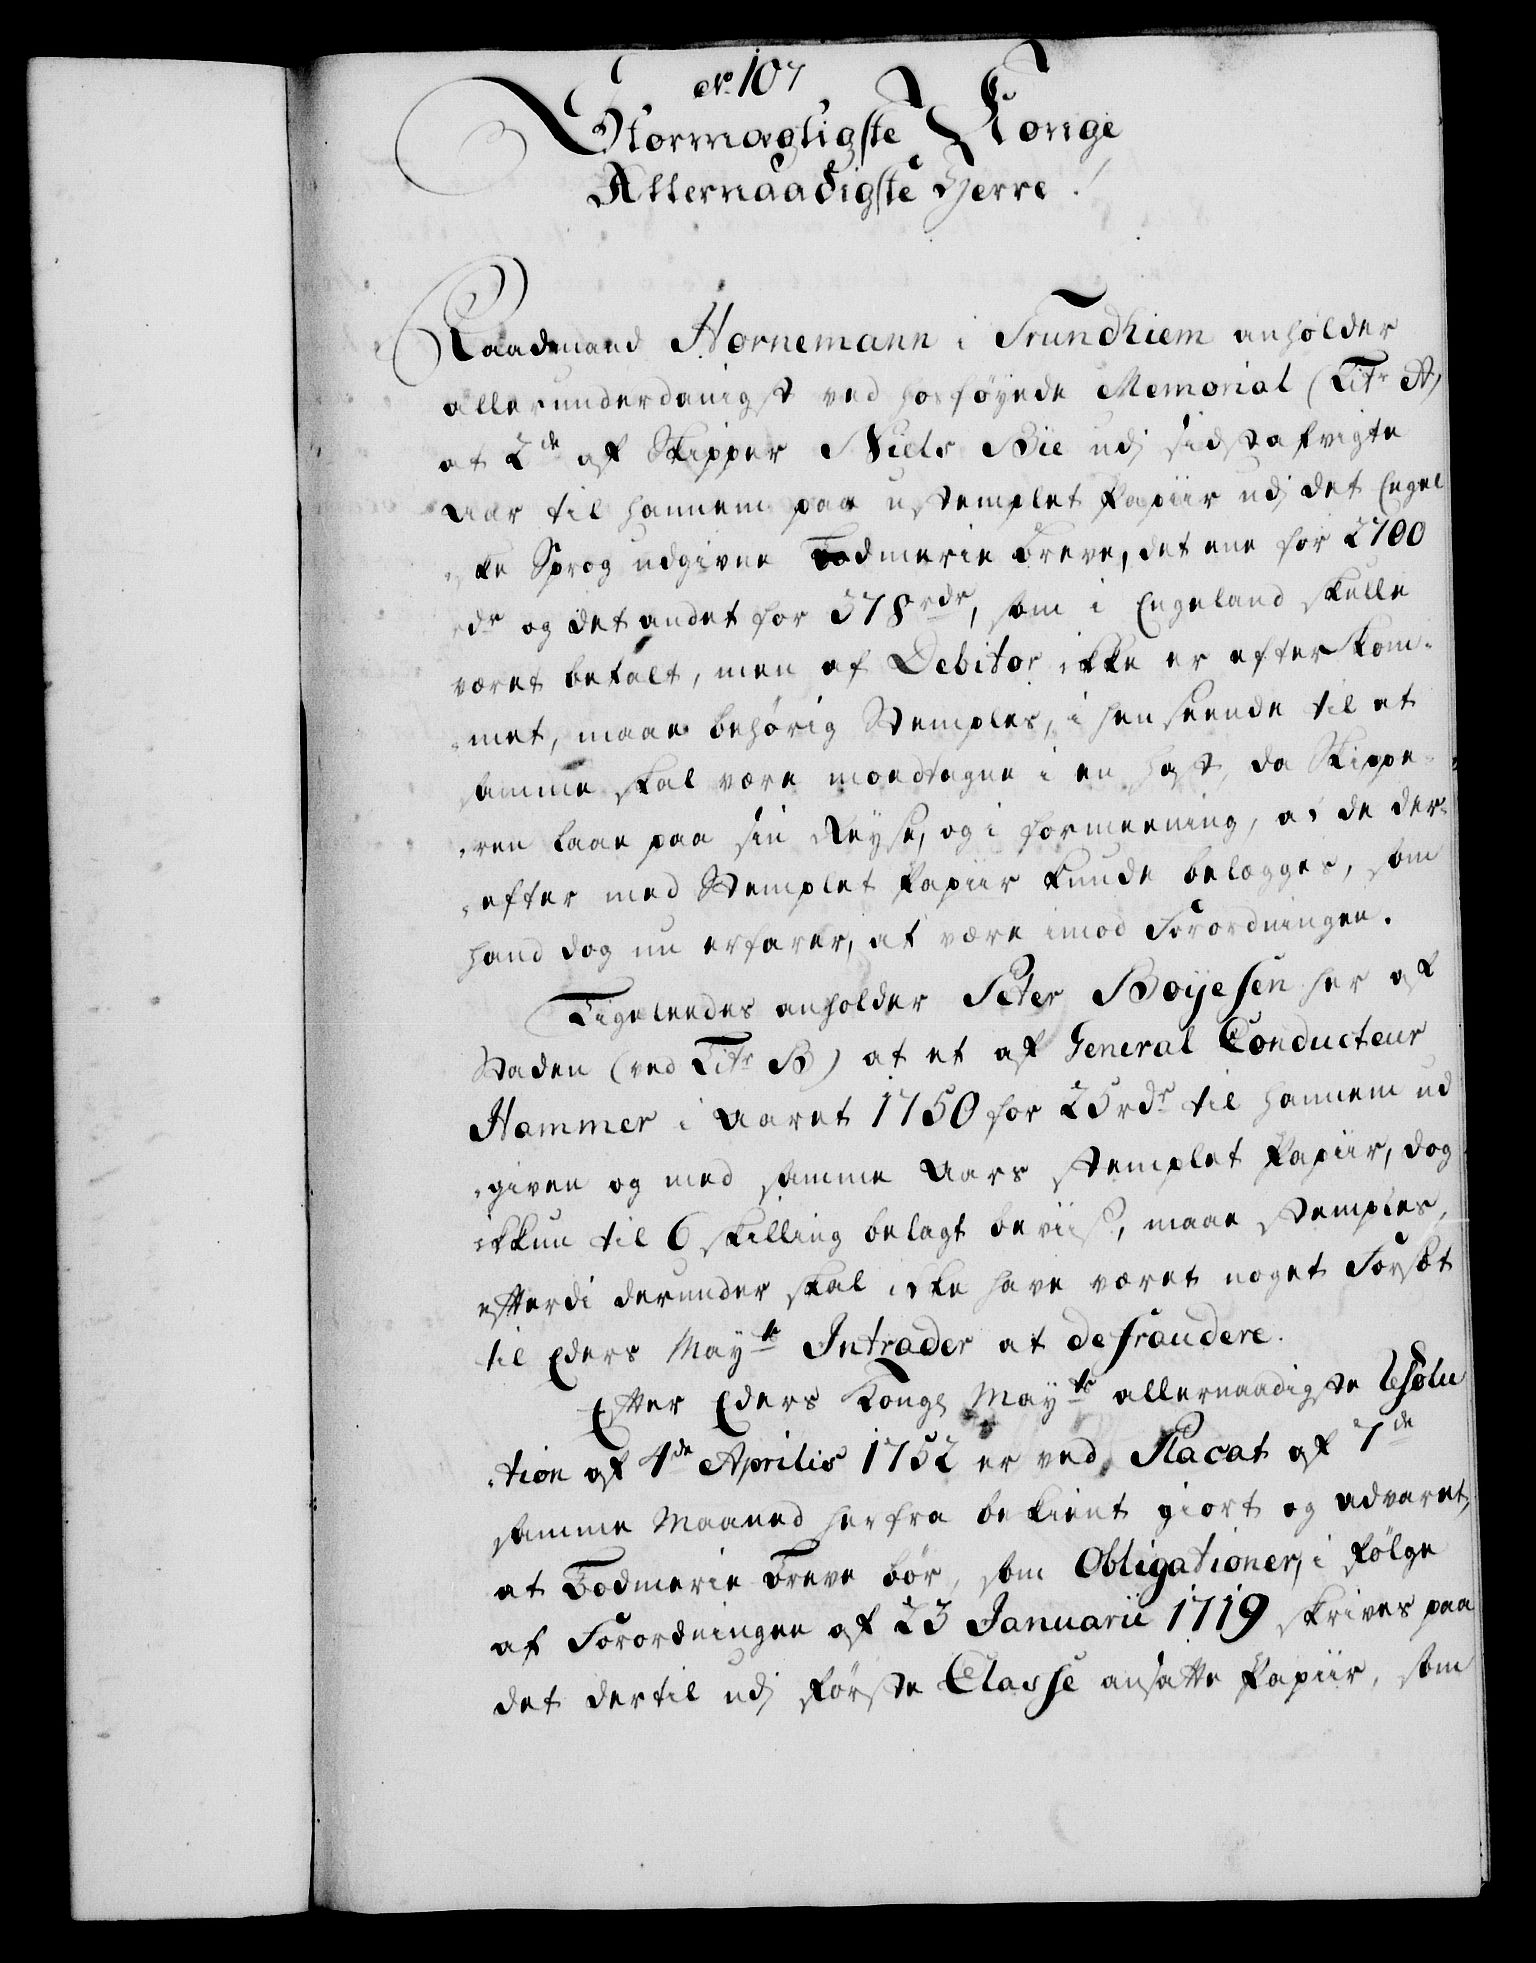 No. 107
Stormægtigste Konge
Allernaadigste Herre!
Raadmand Hornemann i Trundhiem anholder
allerunderdanigst ved hosføyede Memorial (Litr A)
at 2de af Skipper Niels Bie udj sidstafvigte
Aar til hannem paa ustemplet Papiir udj det Engel
ske Sprog udgivne Bodmerie Breve, det ene for 2700
rdr og det andet for 378 rdr, som i Engeland skulle
været betalt, men af Debitor ikke er efterkom-
-met, maae behørig Stemples, i henseende til at
samme skal være modtagne i en Hast, da Skippe-
-ren laae paa sin Reyse, og i formeening, at de der-
-efter med Stemplet Papiir kunde belægges, som
hand dog nu erfarer, at være imod Forordningen.
Ligeleedes anholder Peter Boijesen her af
Staden (ved Litr B) at et af General Conducteur
Hammer i Aaret 1750 for 25 rdr til hannem ud
-given og med samme Aars stemplet Papiir, dog
ikkun til 6 skilling belagt beviis, maae stemples,
efterdi derunder skal ikke have været noget Forsæt
til Eders Mayts Intrader at defraudere.
Efter Eders Kongl Mayts allernaadigste Resolu
-tion af 4de Aprilis 1752 er ved Placat af 7de
samme Maaned herfra bekient giort og advaret,
at Bodmerie Breve bør, som Obligationer, i følge
af Forordningen af 23 Januarii 1719 skrives paa
det dertil udj første Classe ansatte Papiir, som